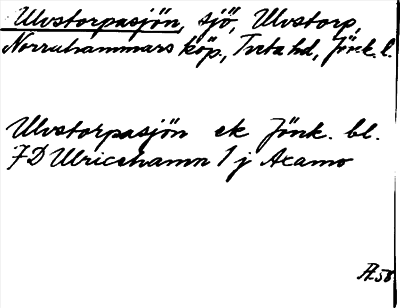 Ulvstorpasjön, sjö, Ulvstorp,
Norrahammars köp., Tveta hd, Jönk. l.
Ulvstorpasjön ek Jönk. bl.
7D Ulricehamn 1 j Axamo
Æ58